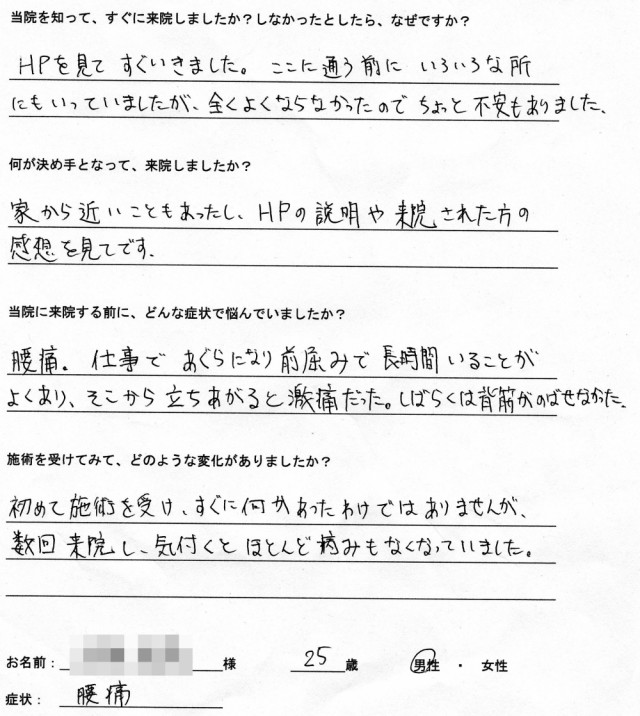 当院を知って、すぐに来院しましたか？しなかったとしたら、なぜですか？
HPを見て すぐいきました。ここに通う前に いろいろな所
にもいっていましたが、全くよくならなかったので ちょっと 不安もありました、
何が決め手となって、来院しましたか？
家から近いこともあったし、HPの説明や来院された方の
感想を見てです、
当院に来院する前に、どんな症状で悩んでいましたか？
腰痛。仕事で あぐらになり前屈みで長時間いることが
よくあり、そこから立ちあがると激痛だった。しばらくは背筋がのばせなかった、
施術を受けてみて、どのような変化がありましたか？
初めて施術を受け、すぐに何かあったわけではありませんが、
数回来院し、気付くとほとんど痛みもなくなっていました。
お名前： 様 25歳 男性 ・ 女性
症状： 腰痛